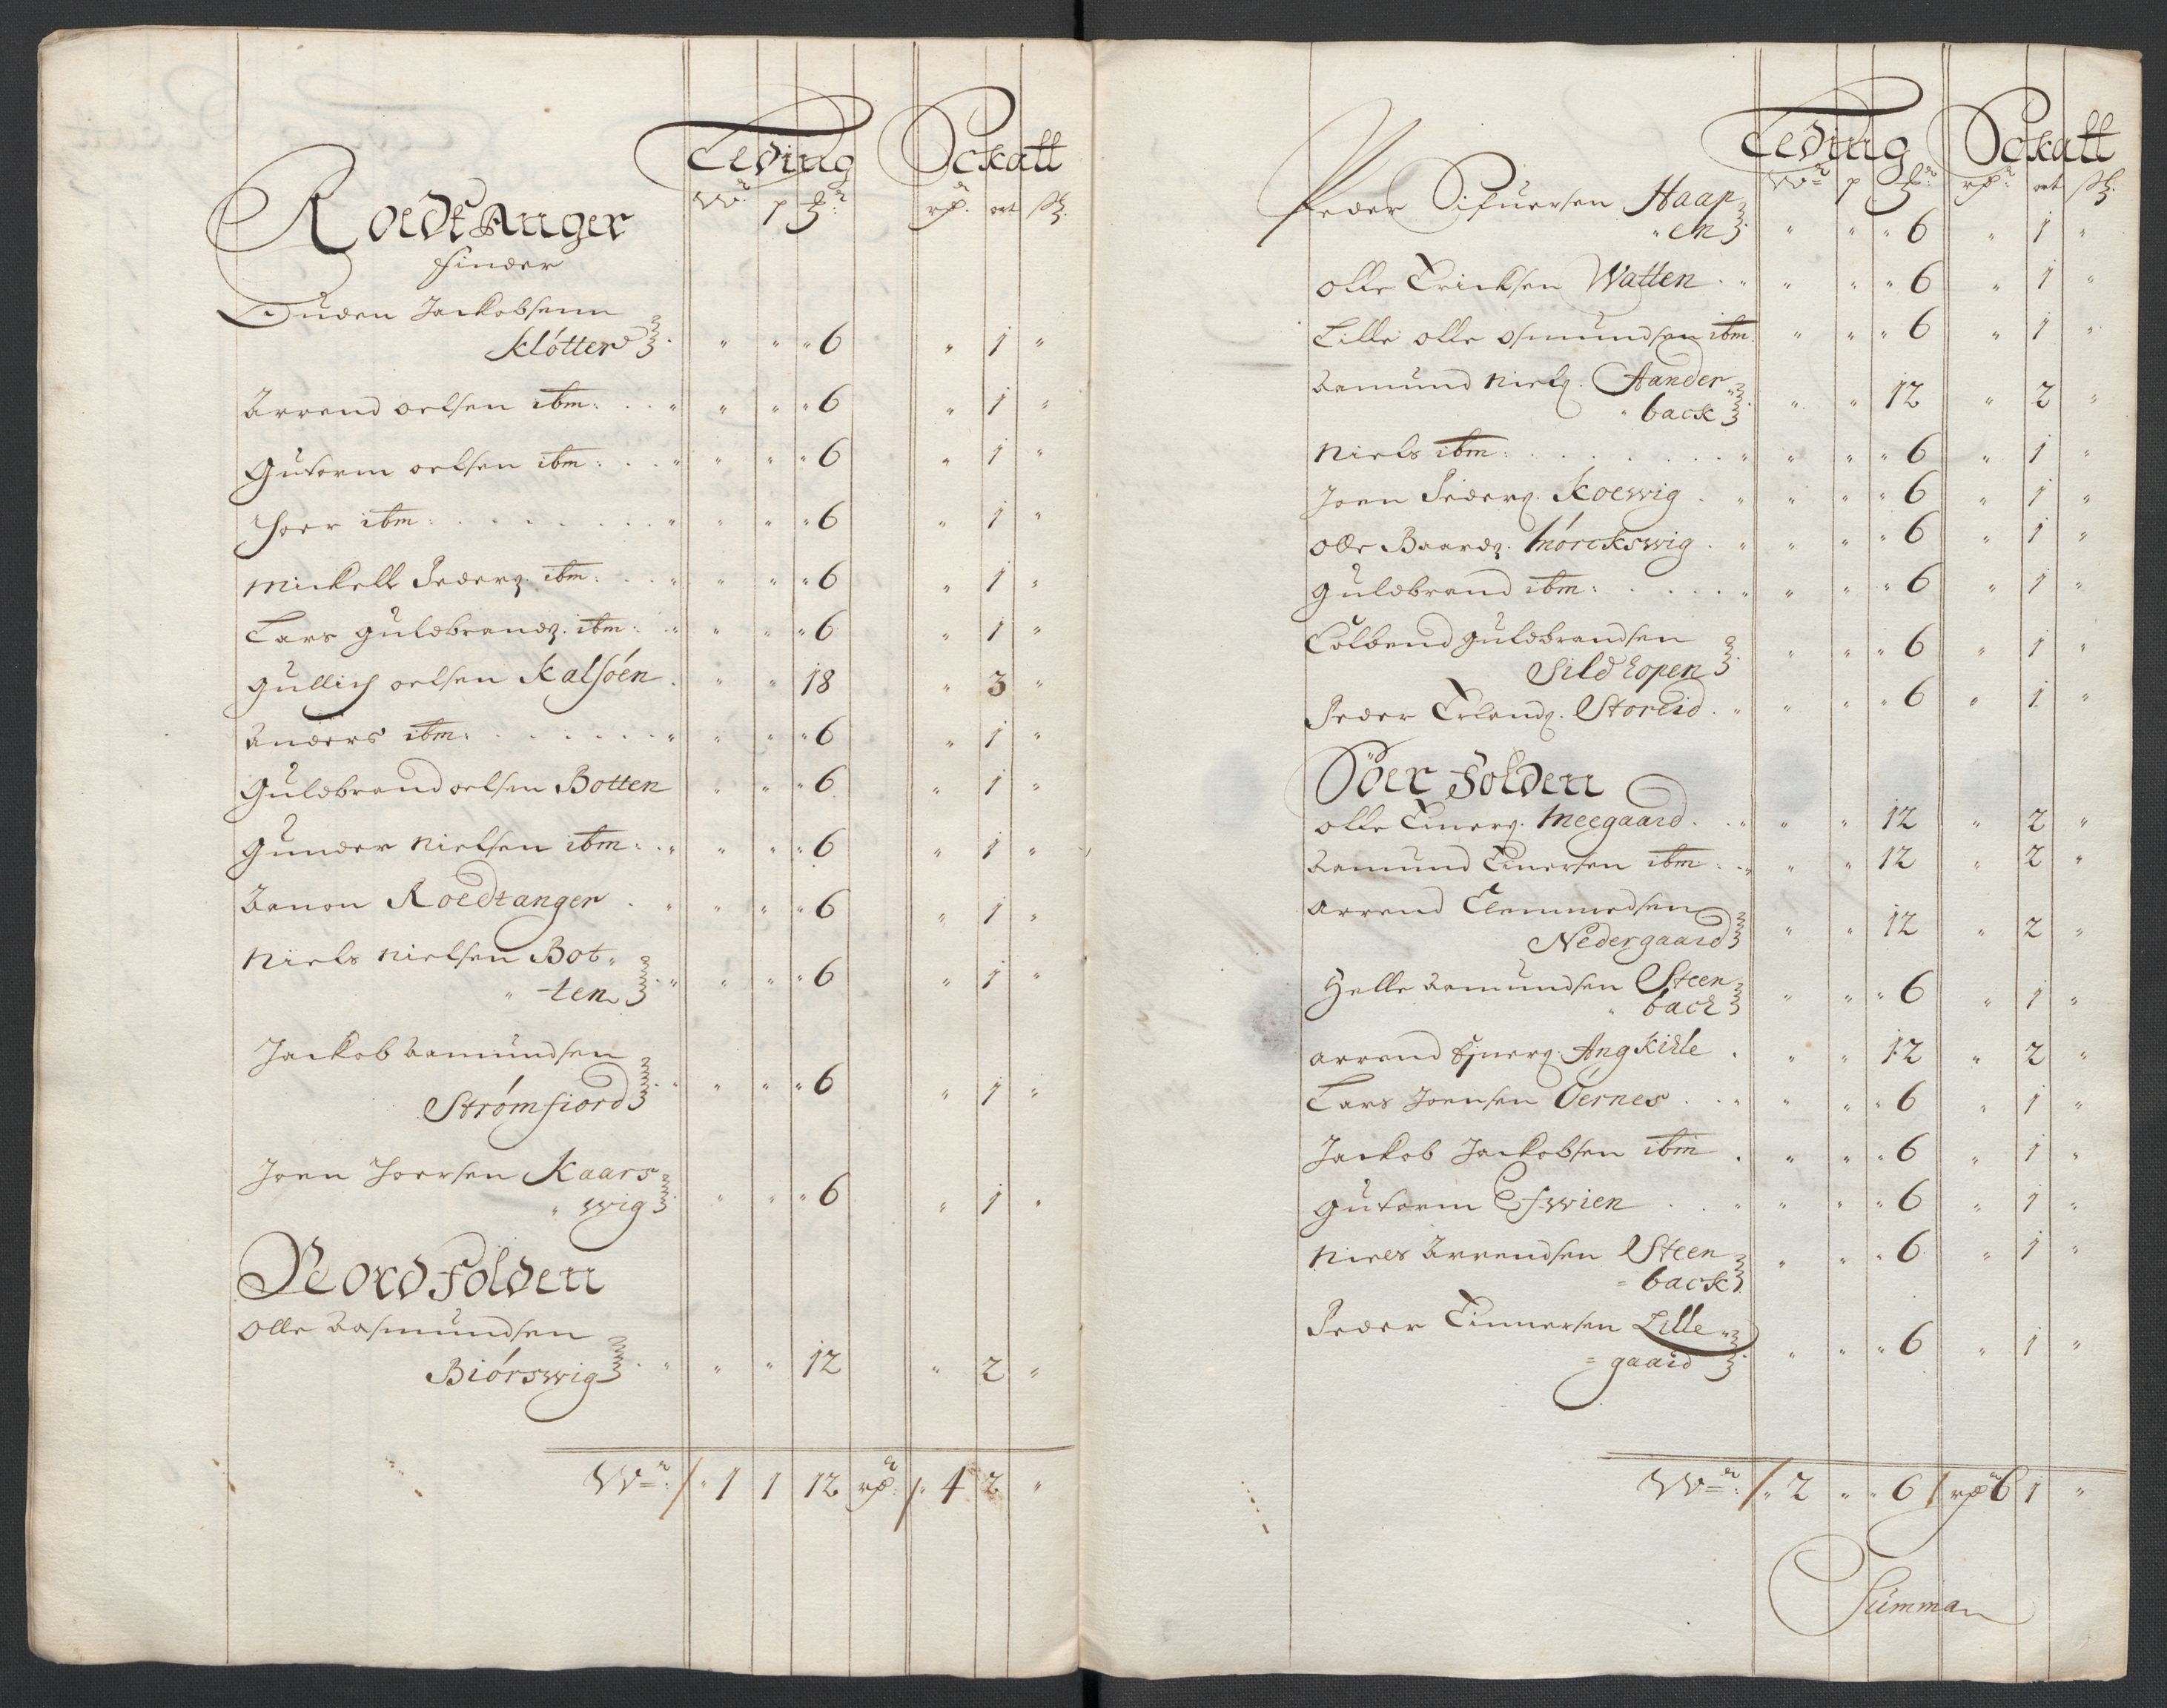 Leding Schatt
W: p ℔: rd. ort sk.
RoedtAnger
finder
Ouden Jackobsenn
Klótter " " " 6 " 1 "
Arrend oelsen ibm: " " " 6 " 1 "
Gutorm oelsen ibm: " " " 6 " 1 "
Joer ibm: " " " 6 " 1 "
Mickell Peders. ibm: " " " 6 " 1 "
Lars Guldbrands. ibm: " " " 6 " 1 "
Gullich oelsen Kalsóen " " 18 " 3 "
Anders ibm: " " " 6 " 1 "
Guldbrand oelsen Botten " " " 6 " 1 "
Gunder Nielsen ibm: " " " 6 " 1 "
Roedtanger " " " 6 " 1 "
Niels Nielsen Bot-
ten " " " 6 " 1 "
Jackob Aamundsen
Strømfiord " " " 6 " 1 "
Joen Joersen Kaars
wig " " " 6 " 1 "
Nordfolden
Olle Aasmundsen
Biórswig " " 12 " 2 "
W: 1 1 12 rd: 4 2 "
Leding Schatt
W: p ℔: rd: ort sk.
Peder Sifuersen Haap
en " " " 6 " 1 "
Olle Ericksen Watten " " " 6 " 1 "
Lille olle osmundsen ibm " " " 6 " 1 "
Aamund Niels. Aander
back " " 12 " 2 "
Niels ibm: " " " 6 " 1 "
Joen Peders. Koewig " " " 6 " 1 "
Olle Baards. Mórckswig " " " 6 " 1 "
Guldbrand ibm: " " " 6 " 1 "
Guldbrandsen
Sildhopen " " " 6 " 1 "
Peder Erlands. Storeid " " " 6 " 1 "
Söer folden
Olle Einers. Meegaard " " 12 " 2 "
Aamund Einersen ibm " " 12 " 2 "
Arrend Clemmedsen
Nedergaard " " 12 " 2 "
Helle Aamundsen Steen
back " " " 6 " 1 "
Arrend Ejners. Angkilde " " 12 " 2 "
Lars Joensen Óernes " " " 6 " 1 "
Jackob Jackobsen ibm " " " 6 " 1 "
Gutorm Efwien " " " 6 " 1 "
Niels Arrendsen Steen
back " " " 6 " 1 "
Peder Einnersen Lille
gaard " " " 6 " 1 "
W: 2 " " 6 rd 6 1 "
Summan